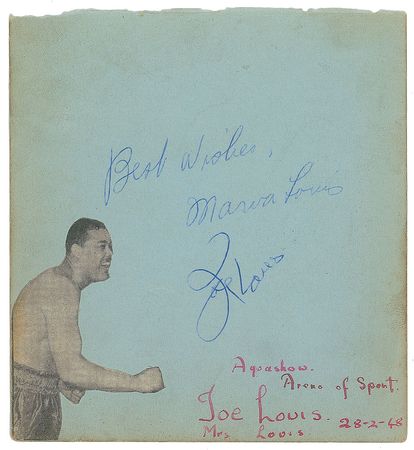 Best Wishes,
Marva Louis
Joe Louis
Aquashow.
Arena of Sport.
Joe Louis. 28-2-48
Mrs. Louis.